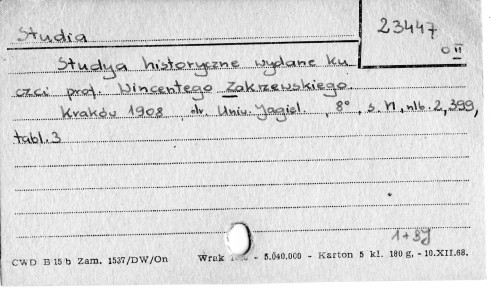 Studia
23447
0 II
Studya historyczne wydane ku
czci prof. Wincentego Zakrzewskiego.
Kraków 1908, dr. Univ. Jagiel., 8°, s. VI, nlb. 2, 399,
tabl. 3
1+3J
CWD B 15 b Zam. 1537/DW/On Wrak - 5.040.000 - Karton 5 kl. 180 g. - 10.XII.68.